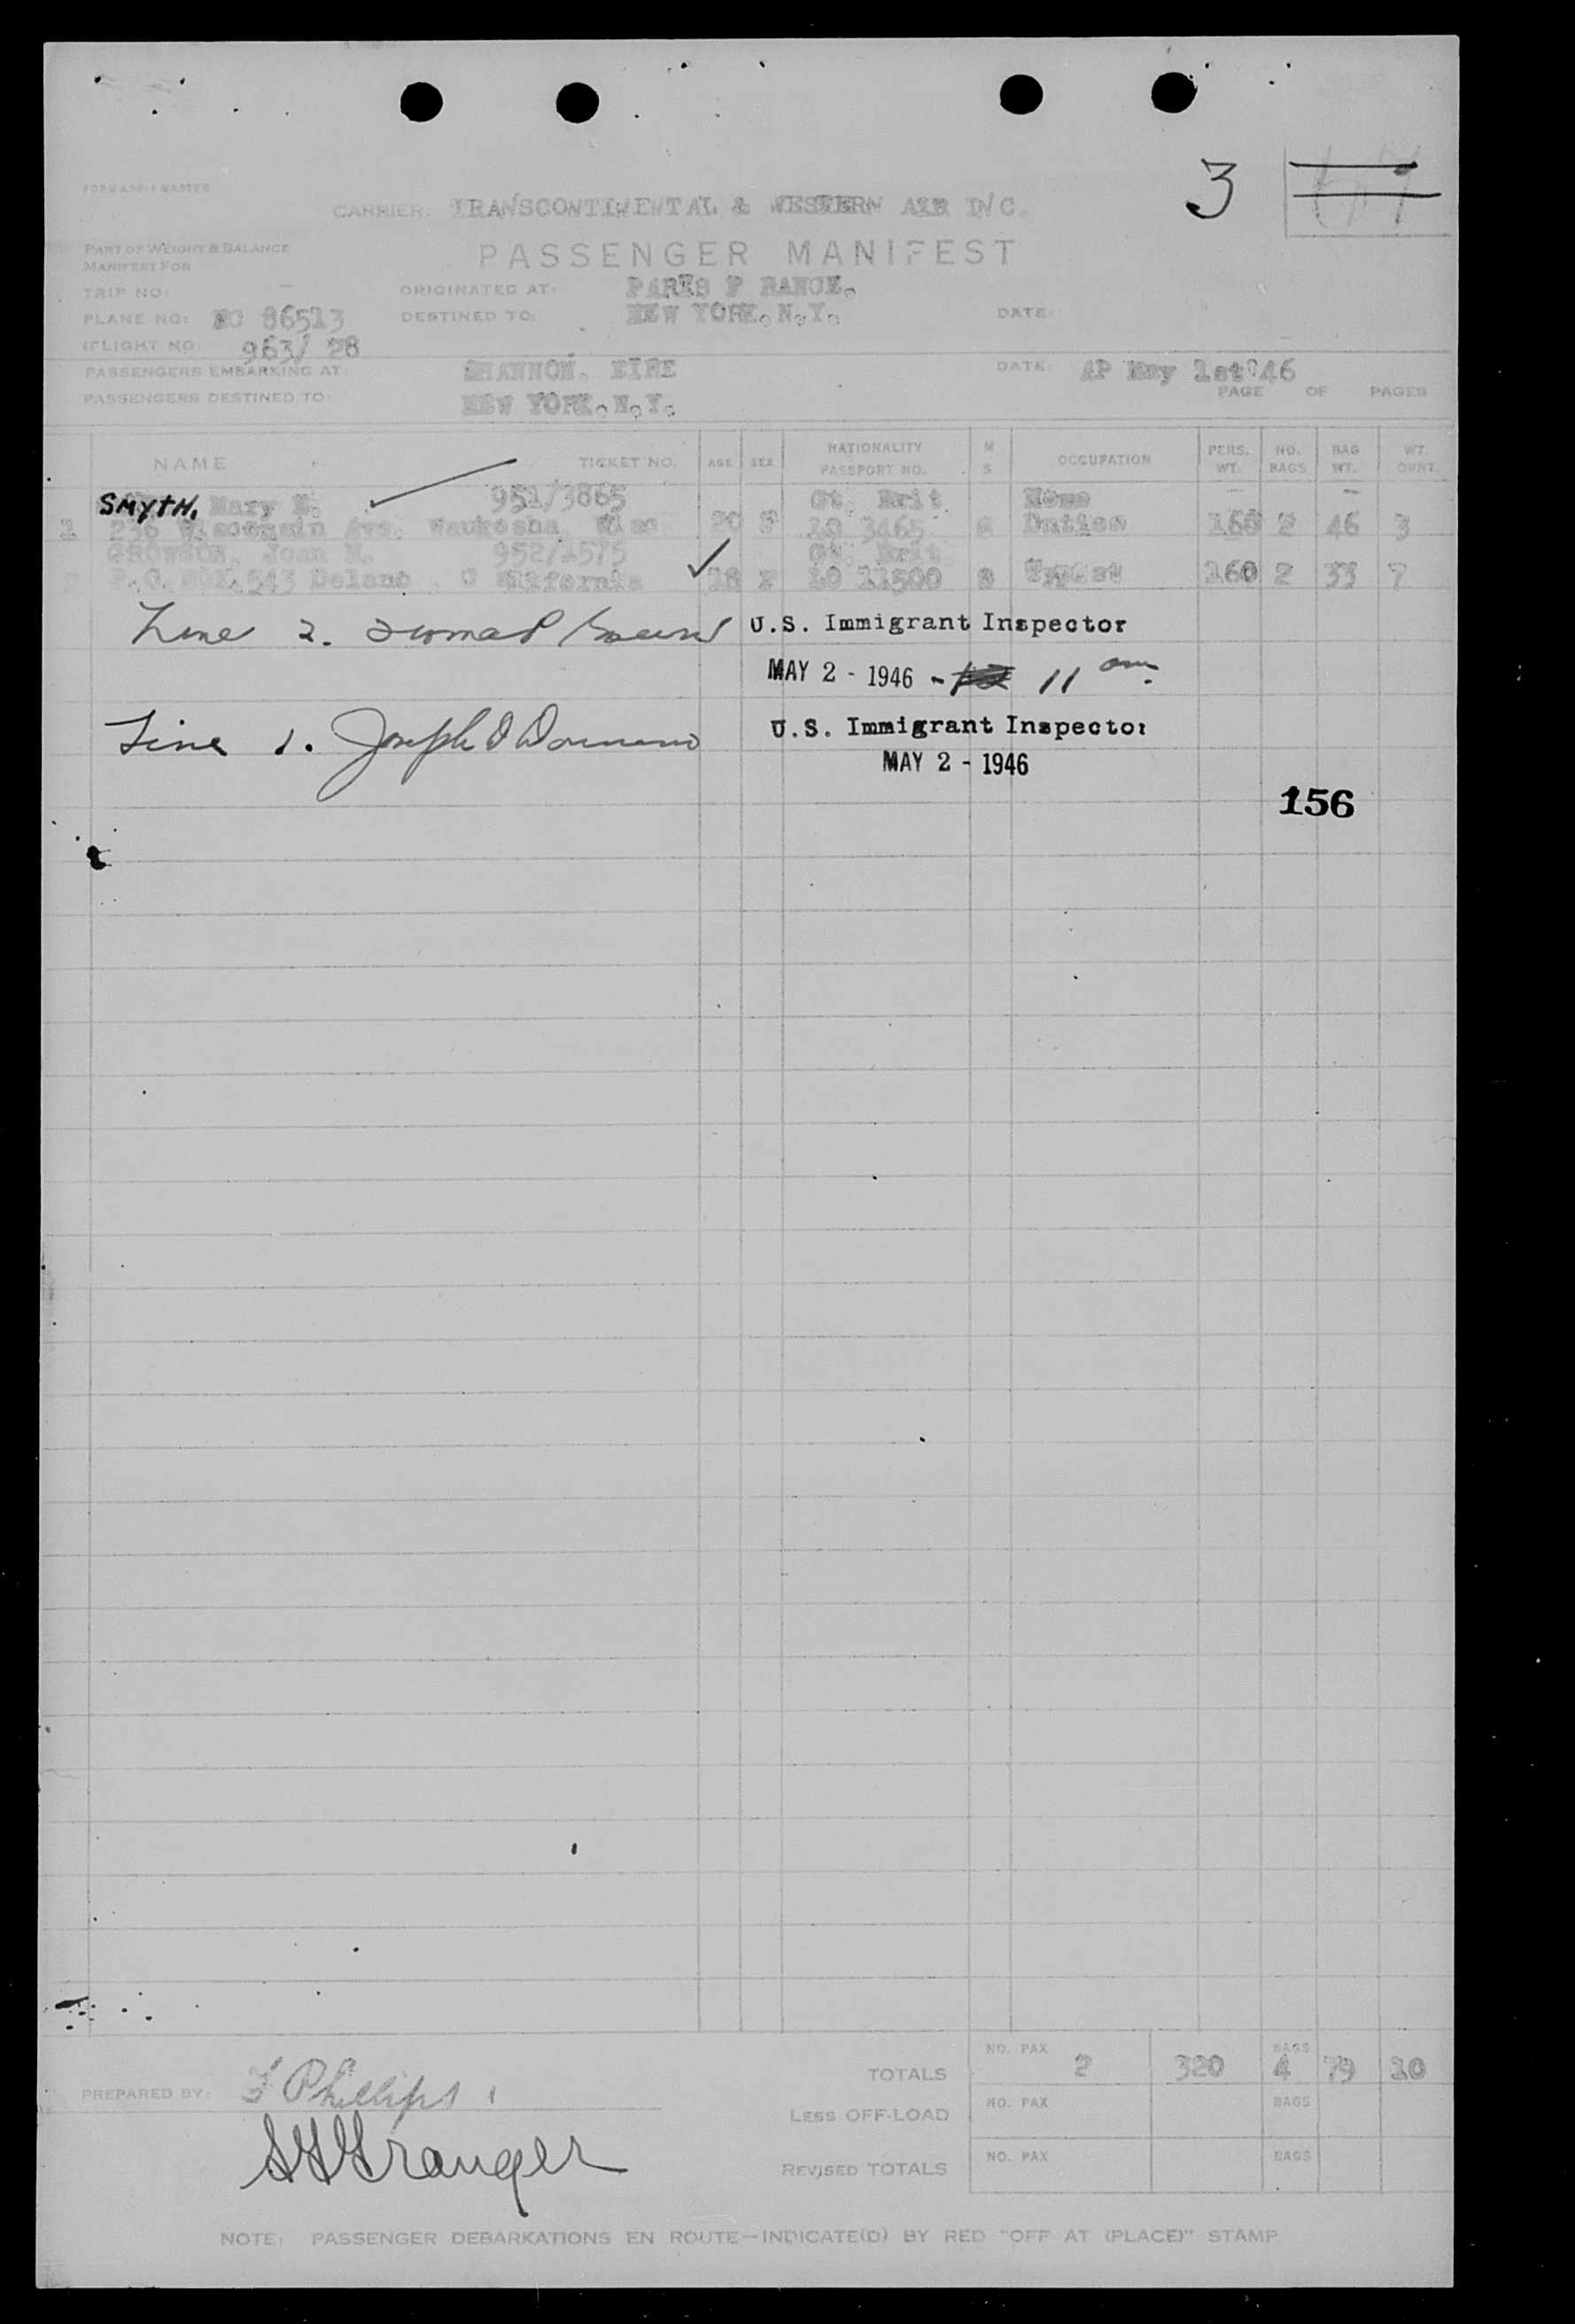 3
CARRIER: TRANSCONTINENTAL & WESTERN AIR INC.
PASSENGER MANIFEST
PART OF WEIGHT & BALANCE
MANIFEST FOR
TRIP NO: -
ORIGINATED AT: PARIS F RANCE.
PLANE NO: NC 86513
DESTINED TO: NEW YORK. N.Y.
DATE:
(FLIGHT NO: 963/ 28
PASSENGERS EMBARKING AT: SHANNON. EIRE
DATE: AP May 1st'46
PASSENGERS DESTINED TO: NEW YORK. N.Y.
PAGE OF PAGES
NAME TICKET NO. AGE SEX NATIONALITY PASSPORT NO. M S OCCUPATION PERS. WT. NO. BAGS BAG WT. WT. OVNT.
SMYTH, Mary 951/3865 Gt. Brit Home
1 236 Wisconsin Ave. Waukesha, Wisc 20 F LO 3465 S Duties 160 2 46 3
CROWSON, Joan M. 952/1575 Gt. Brit
P.O. BOX 543 Delano . C alifornia 18 F LO 11500 S Typist 160 2 33 7
Line 2. U.S. Immigrant Inspector
MAY 2 - 1946 - 11 am.
Line 1. Joseph U.S. Immigrant Inspector
MAY 2 - 1946
156
TOTALS NO. PAX 2 320 BAGS 4 79 10
PREPARED BY: Phillips
LESS OFF-LOAD NO. PAX BAGS
Granger
REVISED TOTALS NO. PAX BAGS
NOTE: PASSENGER DEBARKATIONS EN ROUTE—INDICATE(D) BY RED "OFF AT (PLACE)" STAMP